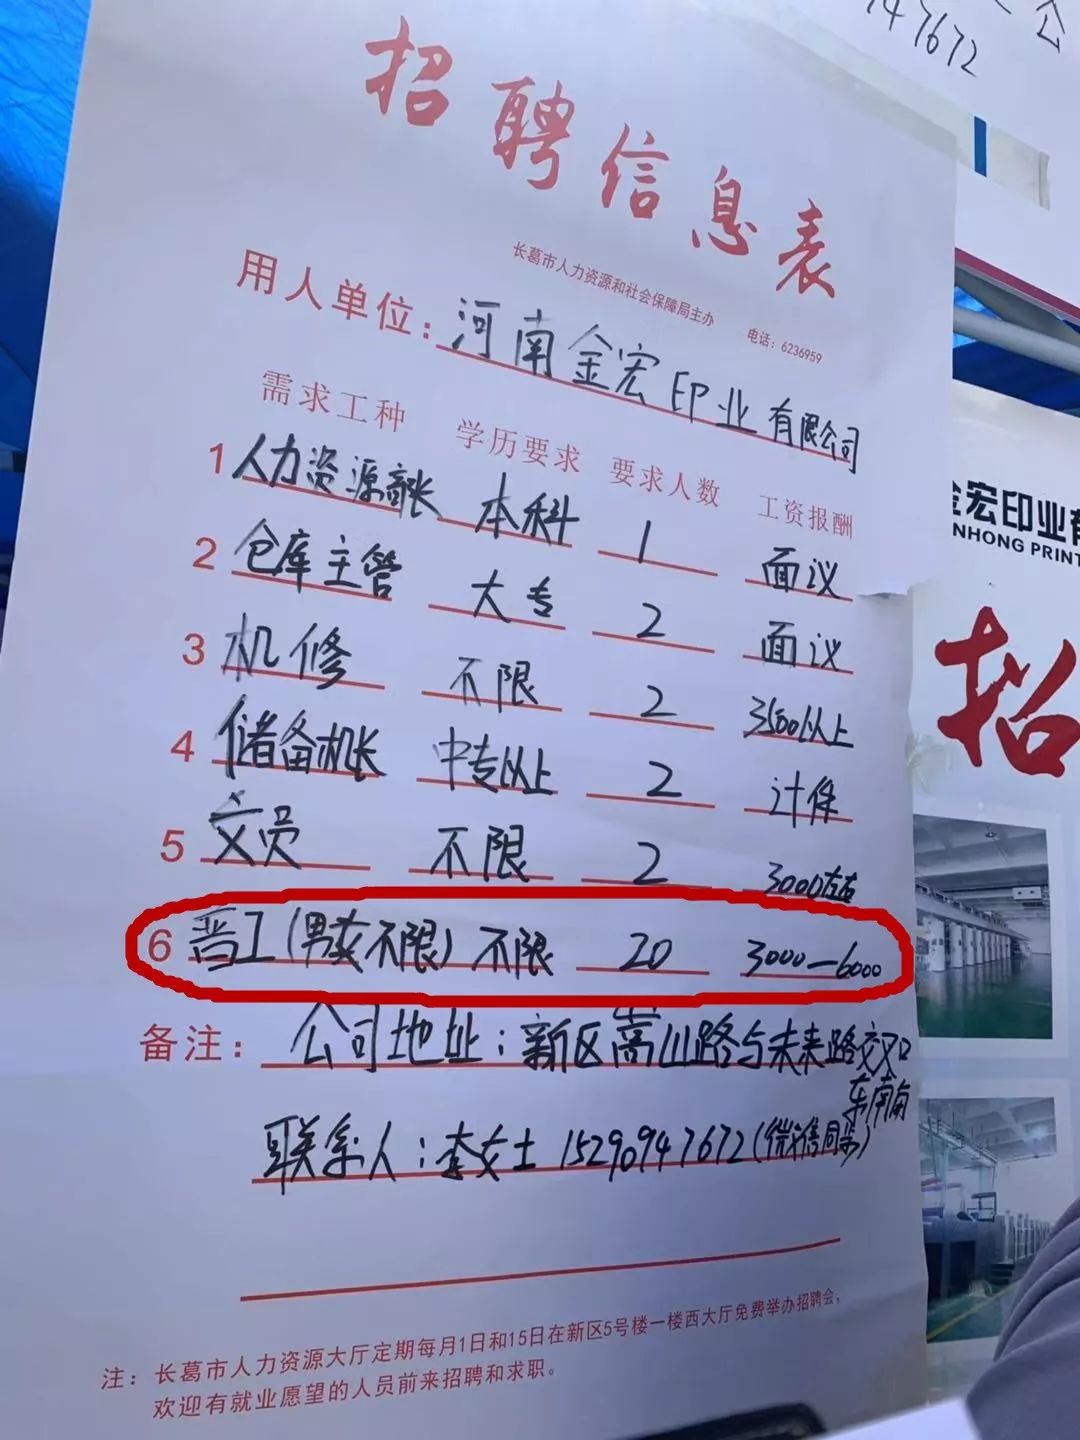 47672
公
招聘信息表
长葛市人力资源和社会保障局主办 电话：6236959
用人单位：河南金宏印业有限公司
需求工种 学历要求 要求人数 工资报酬
1 人力资源部长 本科 1 面议
2 仓库主管 大专 2 面议
3 机修 不限 2 3500以上
4 储备机长 中专以上 2 计件
5 文员 不限 2 3000左右
6 普工(男女不限) 不限 20 3000—6000
备注： 公司地址：新区嵩山路与未来路交叉口
东南角
联系人：李女士 15290947672(微信同步)
注：长葛市人力资源大厅定期每月1日和15日在新区5号楼一楼西大厅免费举办招聘会，
欢迎有就业愿望的人员前来招聘和求职。
金宏印业有
NHONG PRINT
招